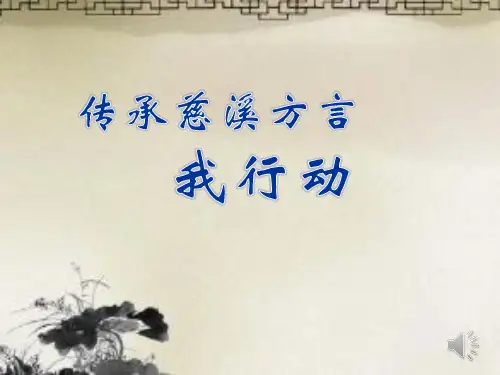 传承慈溪方言
我行动